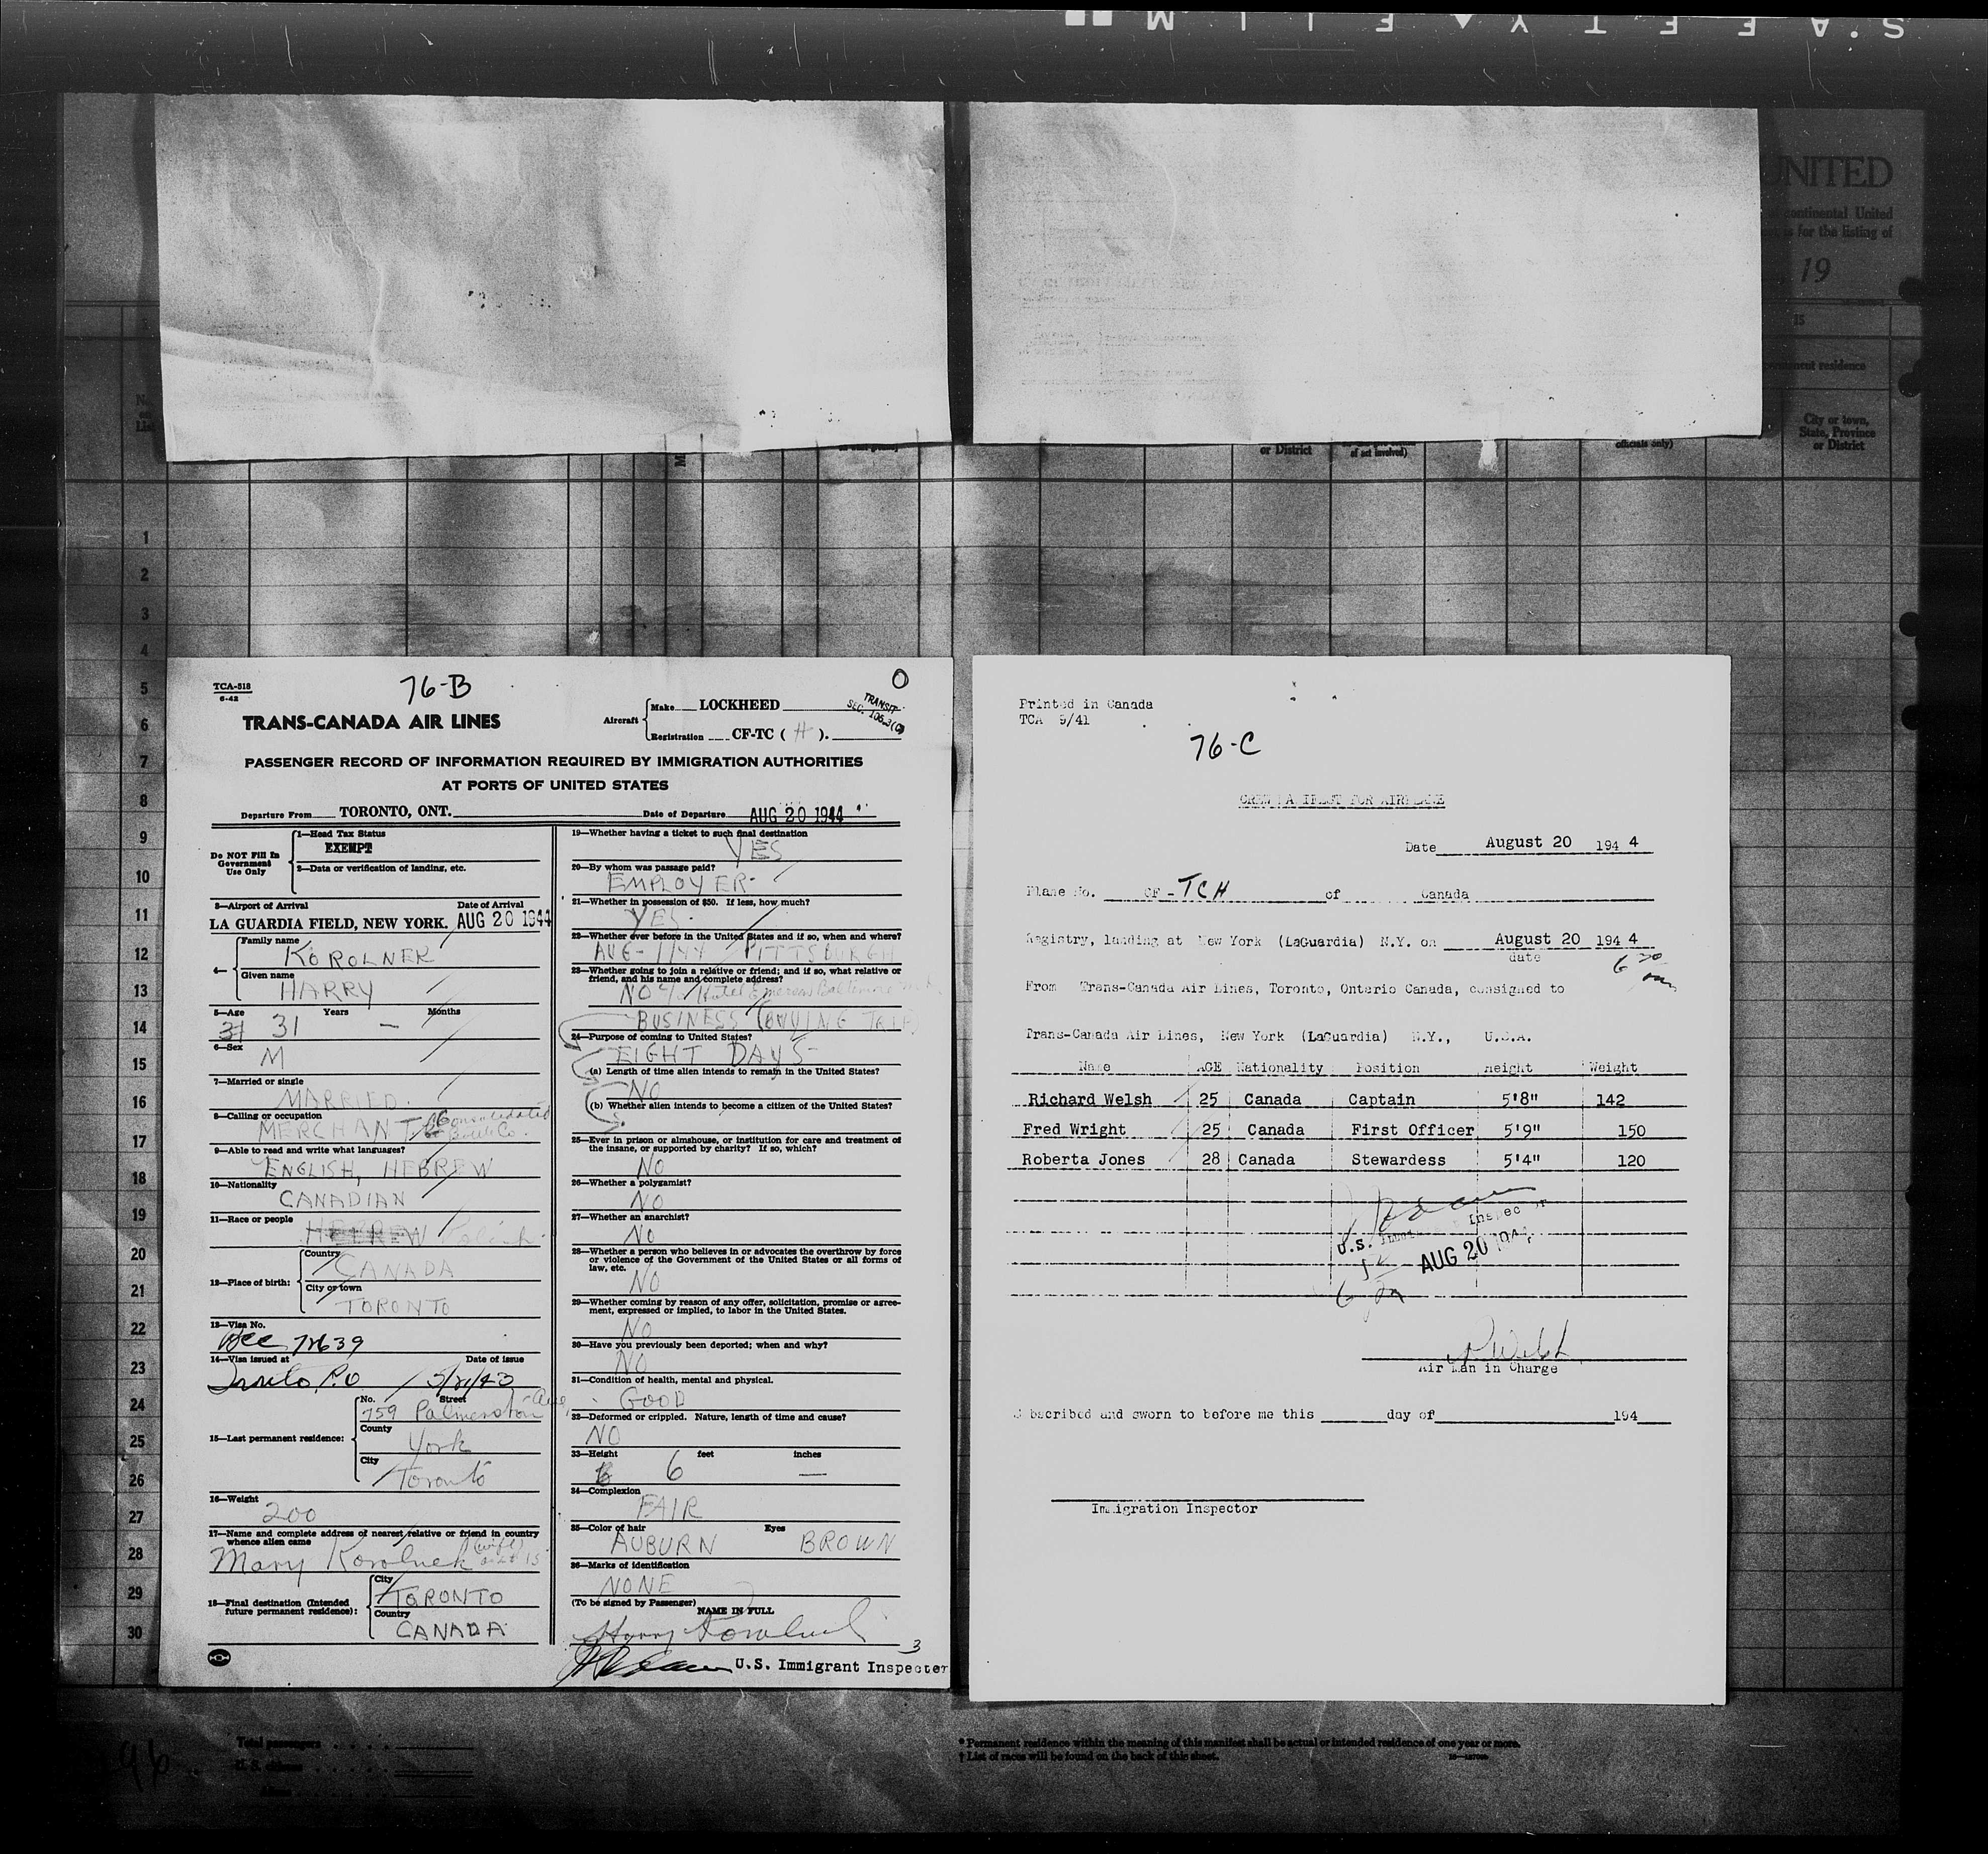 SAFETY FILM
UNITED
continental United
for the listing of
19
15
residence
City or town,
State, Province
or District
or District
of act involved)
officials only)
1
2
3
4
5
6
7
8
9
10
11
12
13
14
15
16
17
18
19
20
21
22
23
24
25
26
27
28
29
30
TCA-518
6-42
76-B
O
TRANS-CANADA AIR LINES
Aircraft
Make LOCKHEED
Registration CF-TC ( H ).
TRANSIT
SEC. 106.3(C)
PASSENGER RECORD OF INFORMATION REQUIRED BY IMMIGRATION AUTHORITIES
AT PORTS OF UNITED STATES
Departure From TORONTO, ONT. Date of Departure AUG 20 1944
Do NOT Fill In
Government
Use Only
1—Head Tax Status
EXEMPT
2—Data or verification of landing, etc.
3—Airport of Arrival Date of Arrival
LA GUARDIA FIELD, NEW YORK. AUG 20 1944
4—
Family name
KOROLNEK
Given name
HARRY
5—Age Years Months
31 31 —
6—Sex
M
7—Married or single
MARRIED.
8—Calling or occupation
MERCHANT Consolidated
Bottle Co.
9—Able to read and write what languages?
ENGLISH, HEBREW
10—Nationality
CANADIAN
11—Race or people
HEBREW Polish
12—Place of birth:
Country
CANADA
City or town
TORONTO
13—Visa No.
14—Visa issued at Date of issue
Toronto, P.O
15—Last permanent residence:
No. Street
759 Palmerston Ave
County
York
City
Toronto
16—Weight
200
17—Name and complete address of nearest relative or friend in country
whence alien came
Mary Korolnek (wife)
as at 15
18—Final destination (Intended
future permanent residence):
City
TORONTO
Country
CANADA
19—Whether having a ticket to such final destination
YES
20—By whom was passage paid?
EMPLOYER.
21—Whether in possession of $50. If less, how much?
YES.
22—Whether ever before in the United States and if so, when and where?
AUG-1/44 PITTSBURGH
23—Whether going to join a relative or friend; and if so, what relative or
friend, and his name and complete address?
NO % Hotel Emerson Baltimore
BUSINESS (BUYING TRIP)
24—Purpose of coming to United States?
EIGHT DAYS
(a) Length of time alien intends to remain in the United States?
NO
(b) Whether alien intends to become a citizen of the United States?
25—Ever in prison or almshouse, or institution for care and treatment of
the insane, or supported by charity? If so, which?
NO
26—Whether a polygamist?
NO
27—Whether an anarchist?
NO
28—Whether a person who believes in or advocates the overthrow by force
or violence of the Government of the United States or all forms of
law, etc.
NO
29—Whether coming by reason of any offer, solicitation, promise or agree-
ment, expressed or implied, to labor in the United States.
NO
30—Have you previously been deported; when and why?
NO
31—Condition of health, mental and physical.
GOOD
32—Deformed or crippled. Nature, length of time and cause?
NO
33—Height feet inches
6 —
34—Complexion
FAIR
35—Color of hair Eyes
AUBURN BROWN
36—Marks of identification
NONE
(To be signed by Passenger)
NAME IN FULL
Harry Korolnek
3
U.S. Immigrant Inspector
Printed in Canada
TCA 9/41
76-C
CREW MANIFEST FOR AIRPLANE
Date August 20 194 4
Plane No. CF-TCH of Canada
Registry, landing at New York (LaGuardia) N.Y. on August 20 194 4
date
From Trans-Canada Air Lines, Toronto, Ontario Canada, consigned to
Trans-Canada Air Lines, New York (LaGuardia) N.Y., U.S.A.
Name AGE Nationality Position Height Weight
Richard Welsh 25 Canada Captain 5'8" 142
Fred Wright 25 Canada First Officer 5'9" 150
Roberta Jones 28 Canada Stewardess 5'4" 120
U.S. Immigrant Inspector
AUG 20 1944
R Welsh
Air Man in Charge
Subscribed and sworn to before me this day of 194
Immigration Inspector
Total passengers
U.S. citizens
Aliens
* Permanent residence within the meaning of this manifest shall be actual or intended residence of one year or more.
† List of races will be found on the back of this sheet.